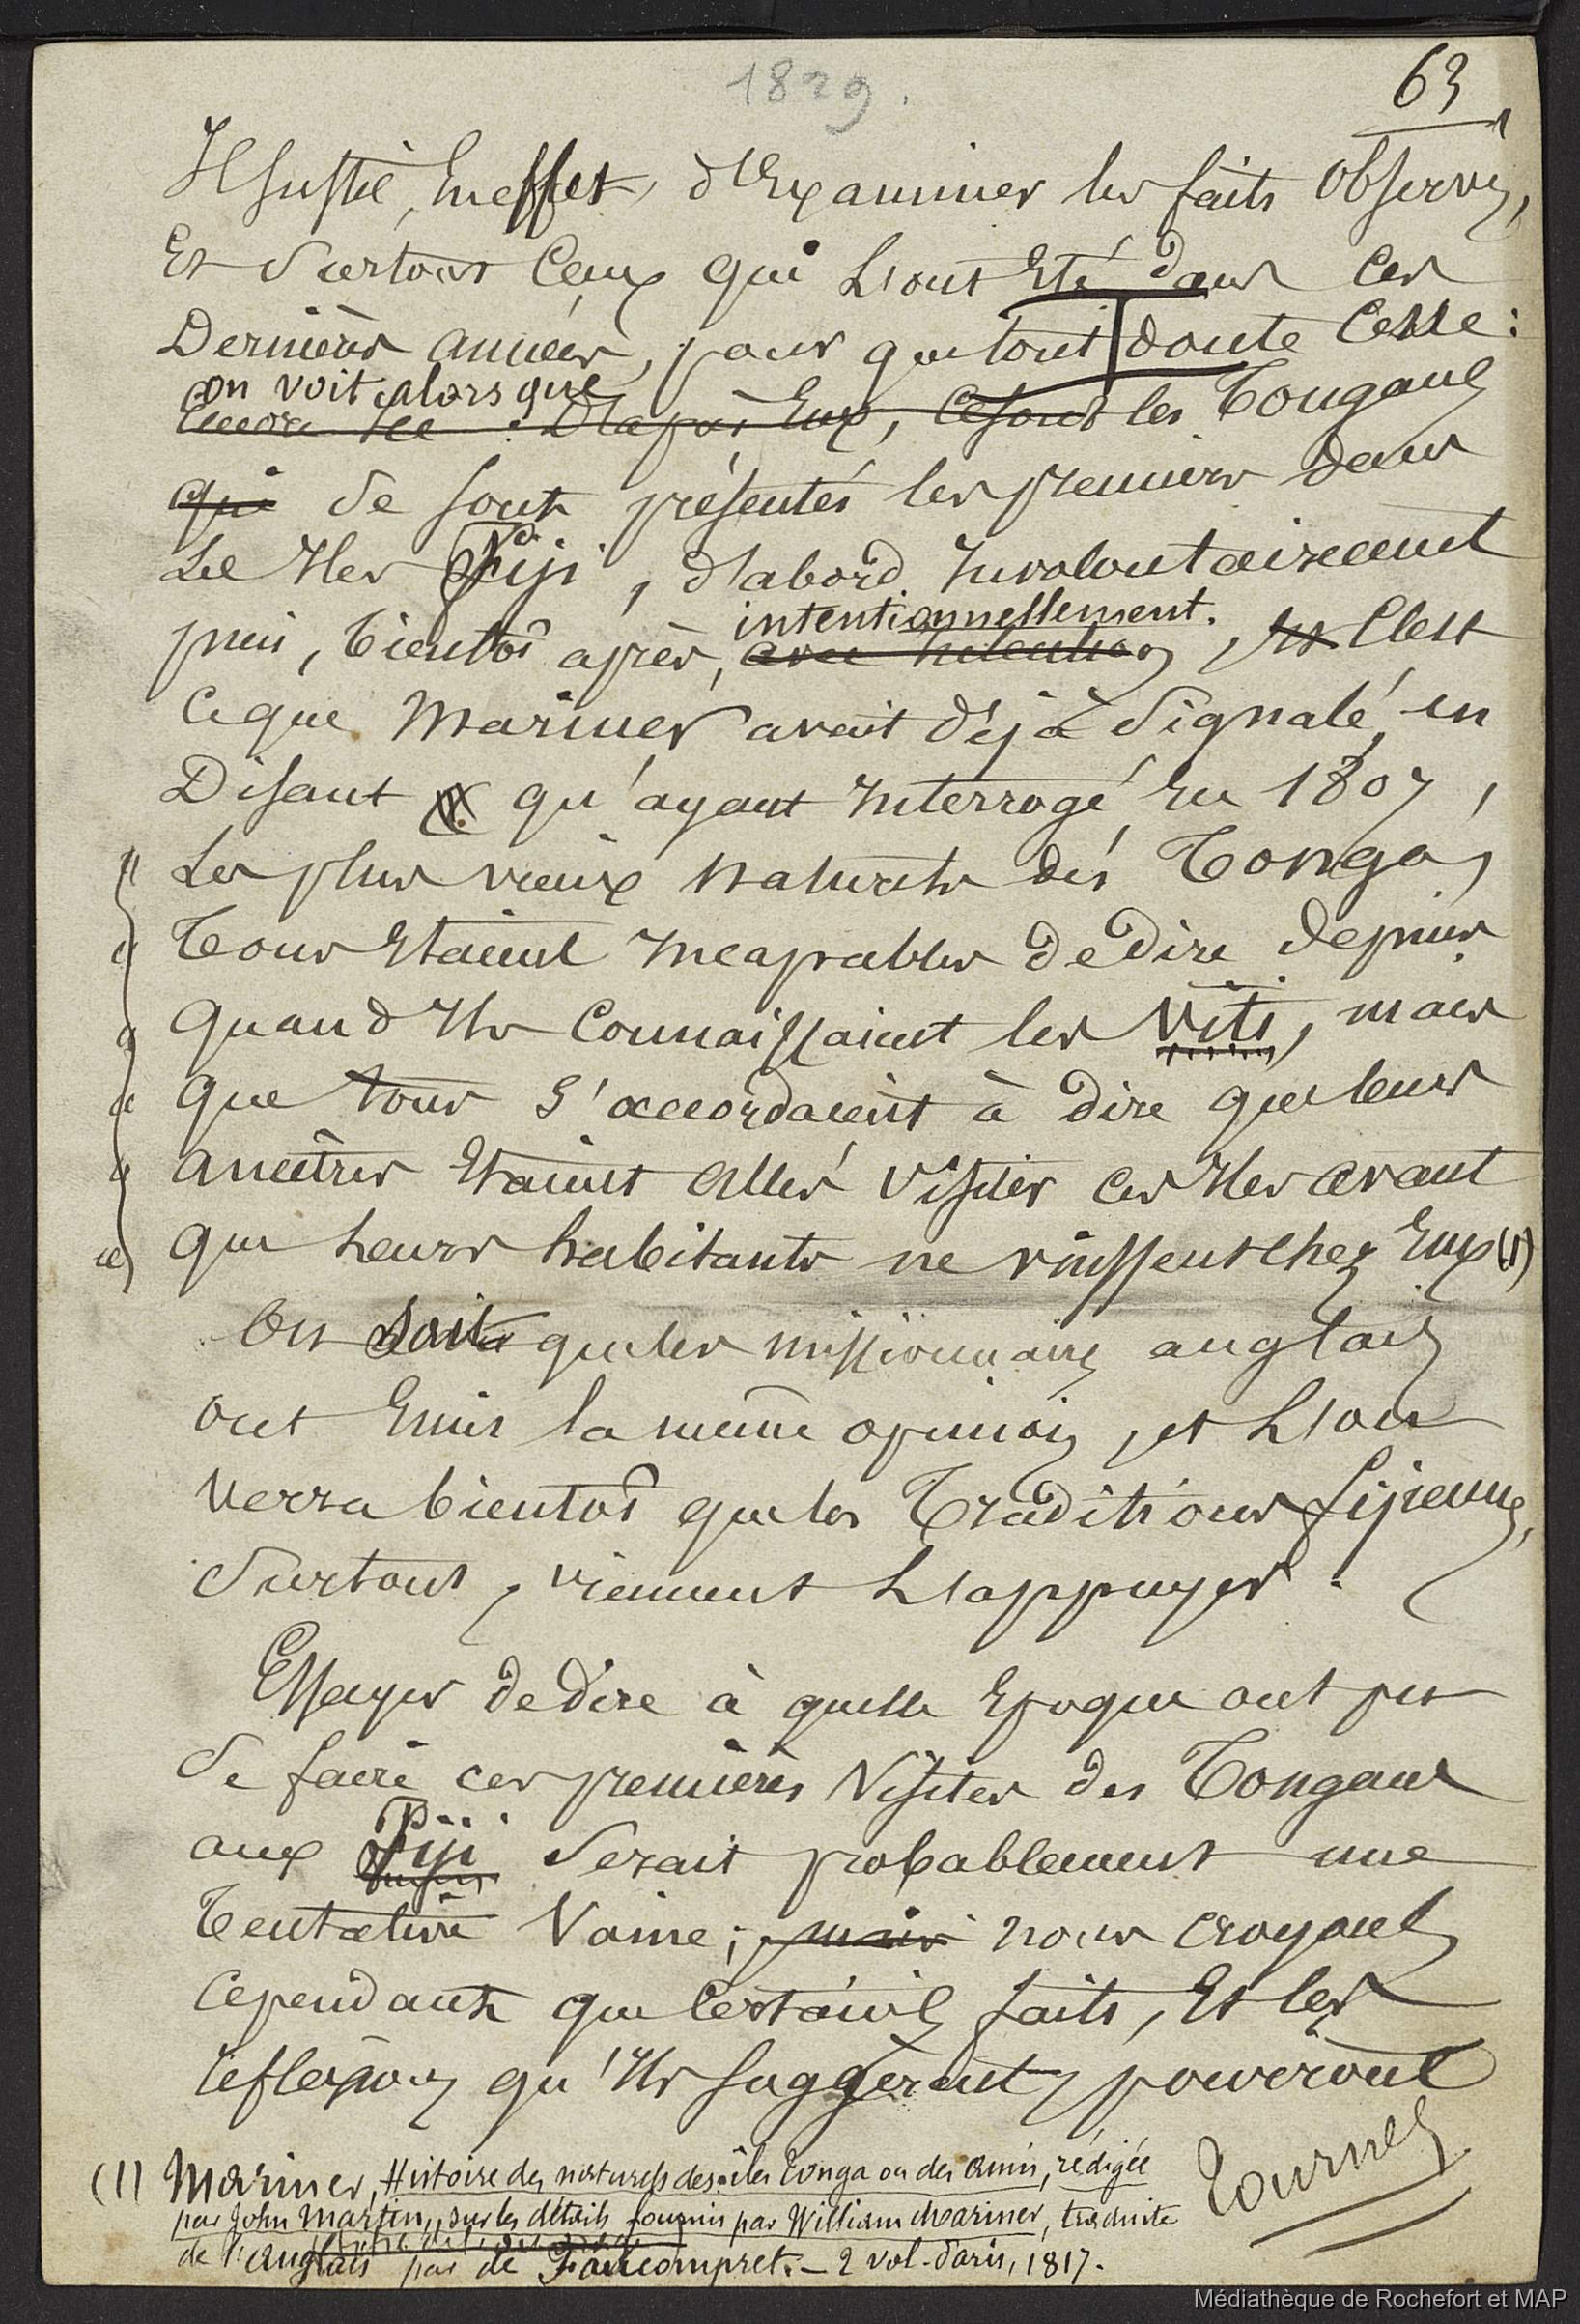 1829.
63
Il suffit, en effet, d'Examiner les faits observés,
Et surtout Ceux qui L'ont Eté dans ces
Dernières années, pour que tout doute Cesse :
on voit alors que
D'après Eux, Ce sont les Tongans
qui se sont présentés les premiers dans
les Iles Fiji, d'abord Involontairement
intentionnellement.
puis, bientôt après, avec Intention, Et C'est
ce que Mariner avait déjà signalé, en
Disant qu'ayant Interrogé, En 1807,
" Les plus vieux naturels des Tonga,
" Tous Etaient Incapables de dire depuis
" quand Ils Connaissaient les Viti, mais
" que tous s'accordaient à dire que leurs
" ancêtres Etaient allés visiter ces Iles avant
" que Leurs habitants ne vinssent chez Eux (1)
On sait que les missionnaires anglais
ont Emis la même opinion, et L'on
verra bientôt que les Traditions fijiennes,
Surtout, viennent L'appuyer.
Essayer de dire à quelle Epoque ont pu
se faire ces premières Visites des Tongans
aux Fiji Serait probablement une
Tentative Vaine ; mais nous croyons
cependant que Certains faits, Et les
réflexions qu'Ils suggèrent, pourront
Tournez
(1) Mariner, Histoire des naturels des îles Tonga ou des Amis, rédigée
par John Martin, sur les détails fournis par William Mariner, traduite
de l'Anglais par de Fauconpret. – 2 vol. Paris, 1817.
Médiathèque de Rochefort et MAP